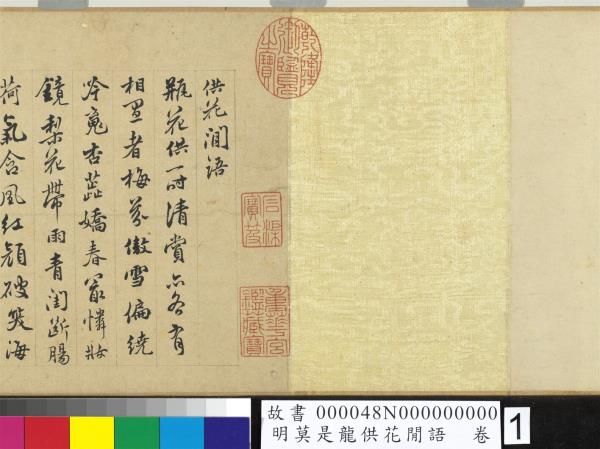 供花閒語
瓶花供一時清賞亦各有
相宜者梅芬傲雪偏繞
吟魂杏蕊嬌春最憐妝
鏡梨花帶雨青閨斷腸
荷氣含風紅顏破笑海
乾隆御覽之寶
石渠寶笈
重華宮鑑藏寶
故書 000048N000000000
明莫是龍供花閒語 卷
1